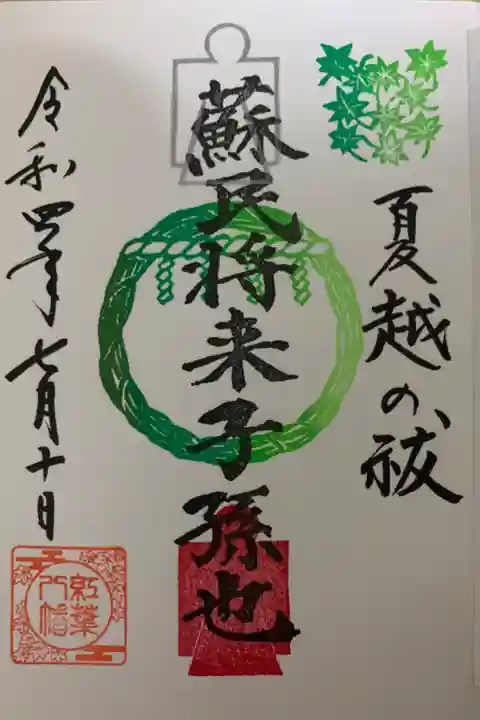 夏越の祓
蘇民将来子孫也
令和四年七月十日
紅葉
八幡